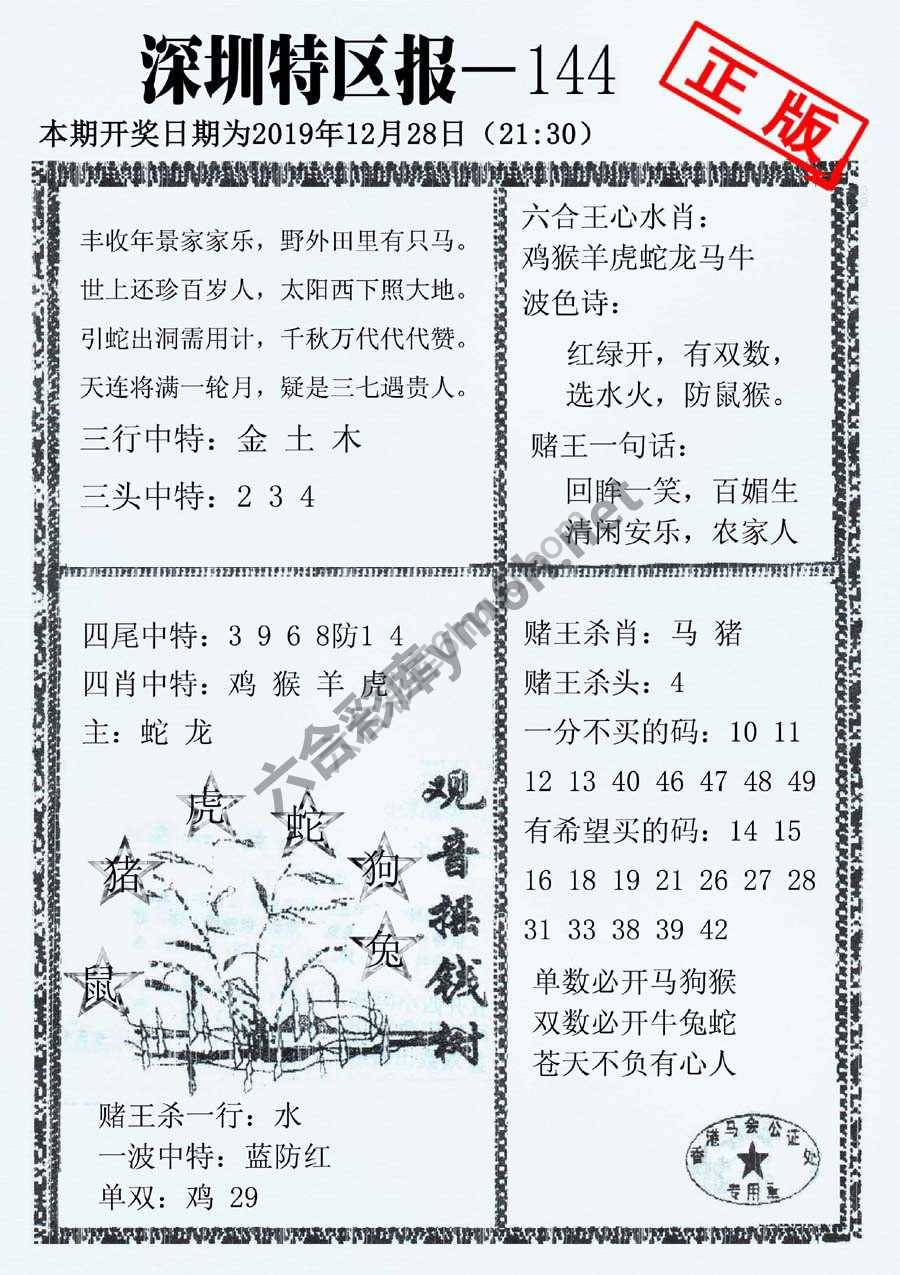 深圳特区报—144
正版
本期开奖日期为2019年12月28日（21:30）
丰收年景家家乐，野外田里有只马。
世上还珍百岁人，太阳西下照大地。
引蛇出洞需用计，千秋万代代代赞。
天连将满一轮月，疑是三七遇贵人。
三行中特：金 土 木
三头中特：2 3 4
六合王心水肖：
鸡猴羊虎蛇龙马牛
波色诗：
红绿开，有双数，
选水火，防鼠猴。
赌王一句话：
回眸一笑，百媚生
清闲安乐，农家人
四尾中特：3 9 6 8防1 4
四肖中特：鸡 猴 羊 虎
主：蛇 龙
虎
蛇
猪
狗
兔
鼠
观音摇钱树
赌王杀一行：水
一波中特：蓝防红
单双：鸡 29
赌王杀肖：马 猪
赌王杀头：4
一分不买的码：10 11
12 13 40 46 47 48 49
有希望买的码：14 15
16 18 19 21 26 27 28
31 33 38 39 42
单数必开马狗猴
双数必开牛兔蛇
苍天不负有心人
香港马会公证处
专用章
六合彩库ymoh.net